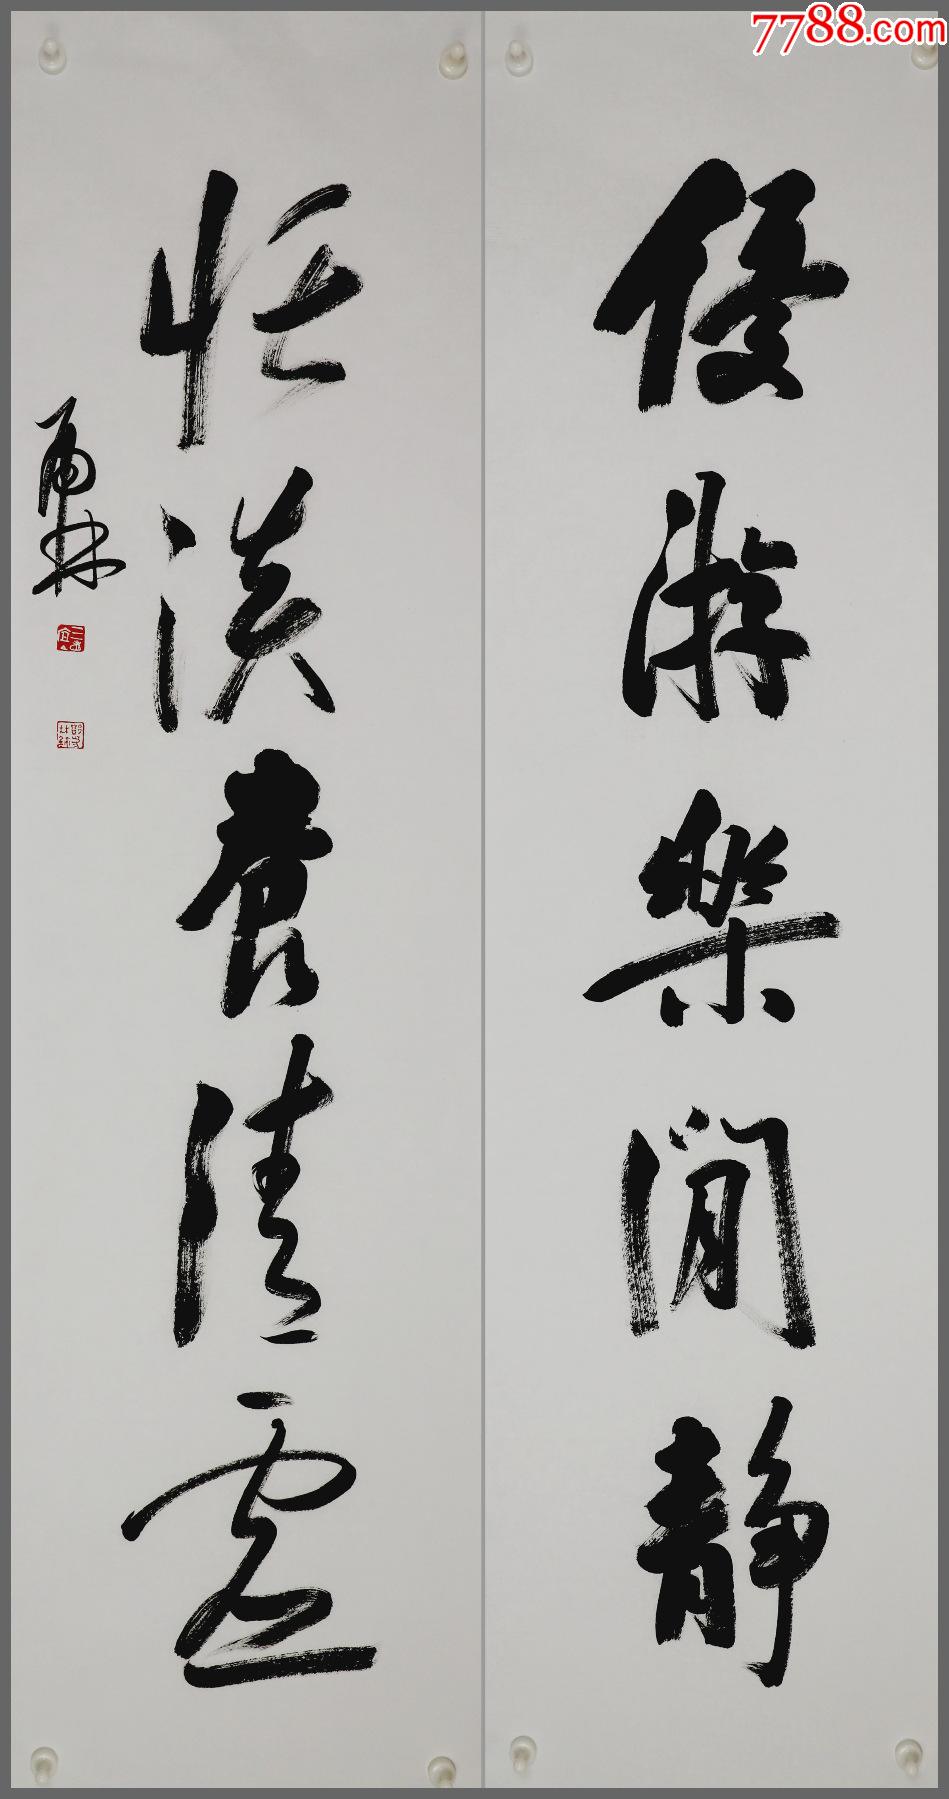 7788.com
優游樂閒靜
恬淡養清虛
雨林